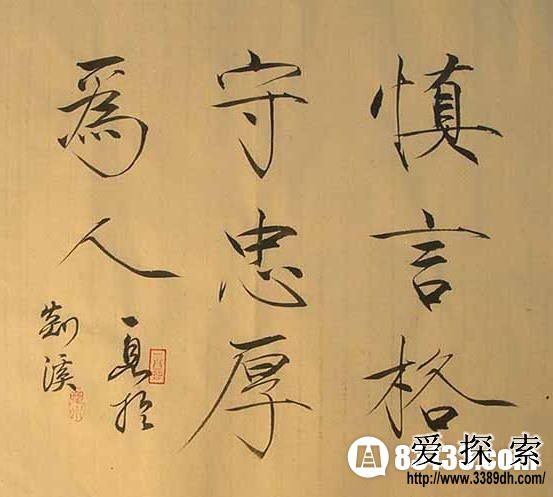 慎言格
守忠厚
為人
一 於
溪
爱探索
http://www.3389dh.com/